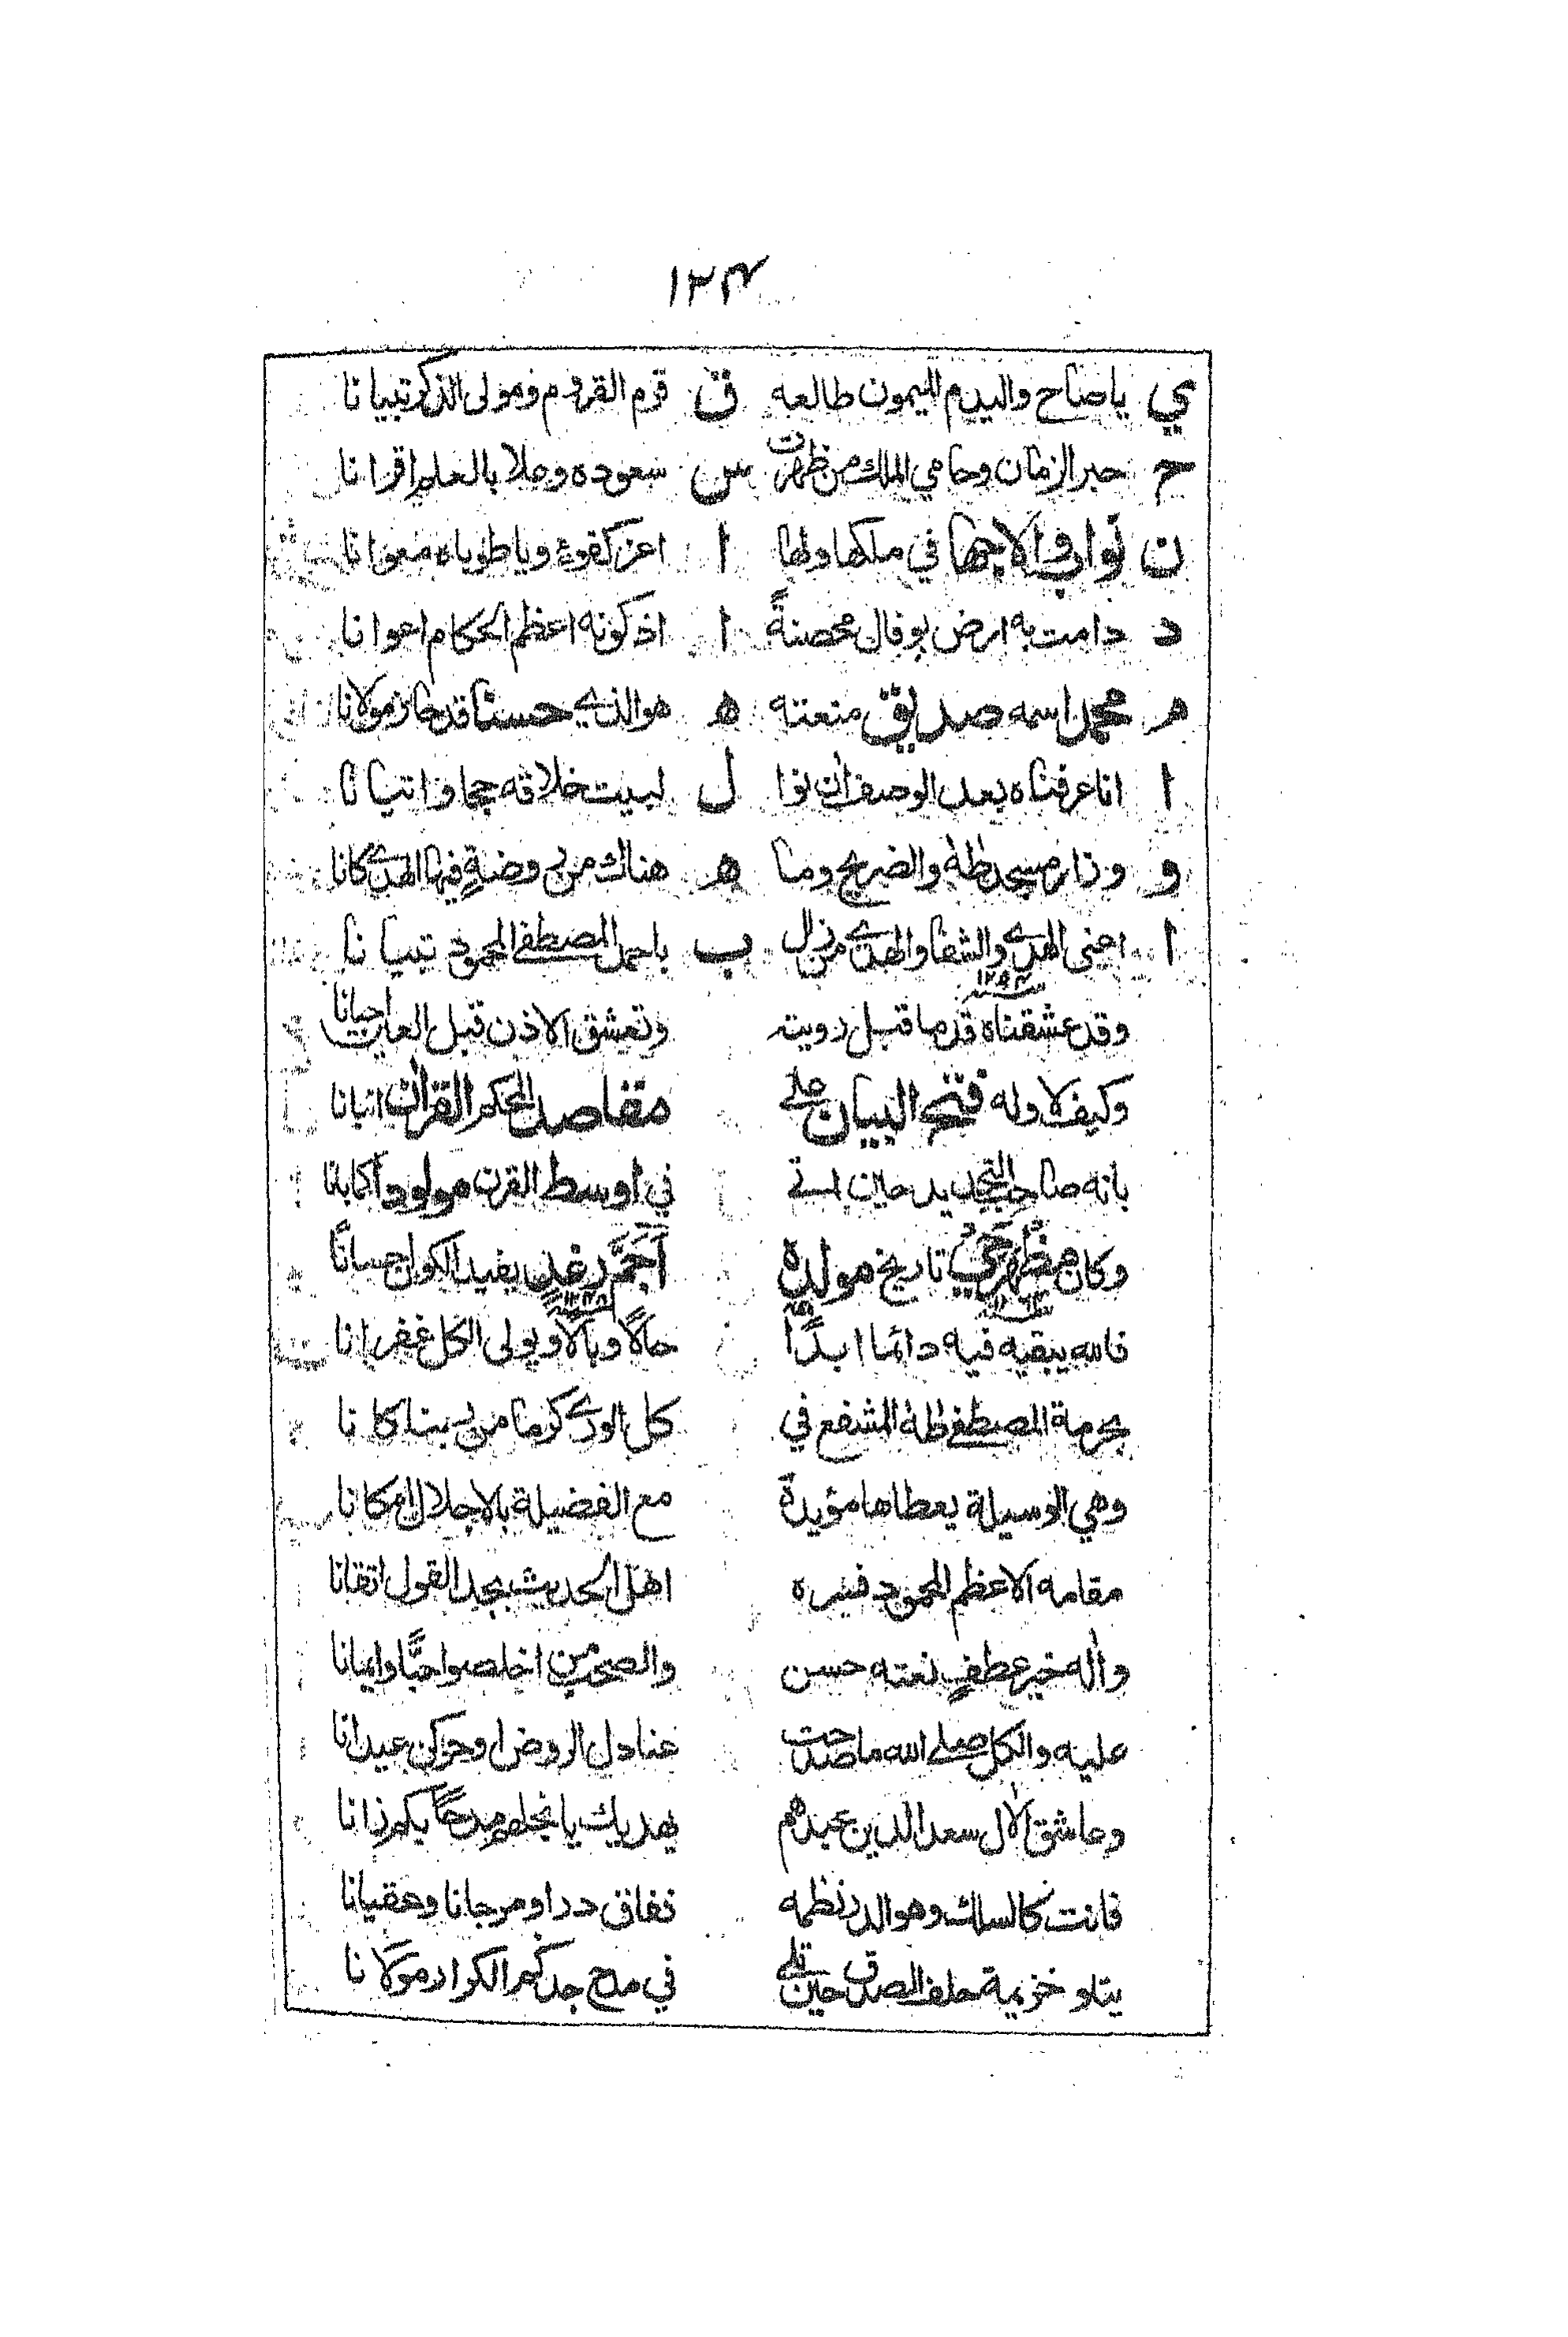 ١٣٤
ي ياصاح واليوم الميمون طالعه ق قرم القروم ومولى الذكر تبيانا
ح حبر الزمان وحامي الملك من ظهرت س سعوده وملا بالعلم اقرانا
ن نواب والاجها في ملكها ولها ا اعز كفوء ويا طوباه معوانا
د دامت به ارض بوفال محصنةً ا اذ كونه اعظم الحكام اعوانا
م محمد اسمه صديق منعته ه هو الذي حسنا قد حاز مولانا
ا انا عرفناه بعد الوصف ان نوا ل لبيت خلاقه حجا واتيانا
و وزار مسجد طه والضريح وما ه هناك من روضة فيها الهدى كانا
ا اعني الهدى والشفا والهدي من زال ب باحمد المصطفى المحمود تبيانا
١٢٥٣
وقد عشقناه قدما قبل رويته وتعشق الاذن قبل العين احيانا
وكيف لا وله فتح البيان على مقاصد المحكم القرآن اتيانا
بانه صاحب التجديد حين اتى في اوسط القرن مولودا كما بانا
وكان مظهر حي تاريخ مولده اجم رغد يفيد الكون احسانًا
١٢٤٨
فالله يبقيه فيه دائما ابدًا حالًا وبالًا ويولى الكل غفرانا
بحرمة المصطفى طه المشفع في كل الورى كرما من ربنا كانا
وهي الوسيلة يعطاها مؤيدة مع الفضيلة بالاجلال امكانا
مقامه الاعظم المحمود فسره اهل الحديث بجد القول اتقانا
وآله خير عطف نعته حسن والصحب من اخلصوا حبًّا وايمانا
عليه والكل صلى الله ما صدحت عنادل الروض او حركن عيدانا
وعاشق الآل سعد الدين عبدهم يهديك يا نجلهم مدحًا بكم زانا
فانت كالسلك وهو الدر نظمه ففاق دررا ومرجانا وعقيانا
يتلو خزيمة حلف الصدق حين تلى في مدح جدكم الكرار مولانا